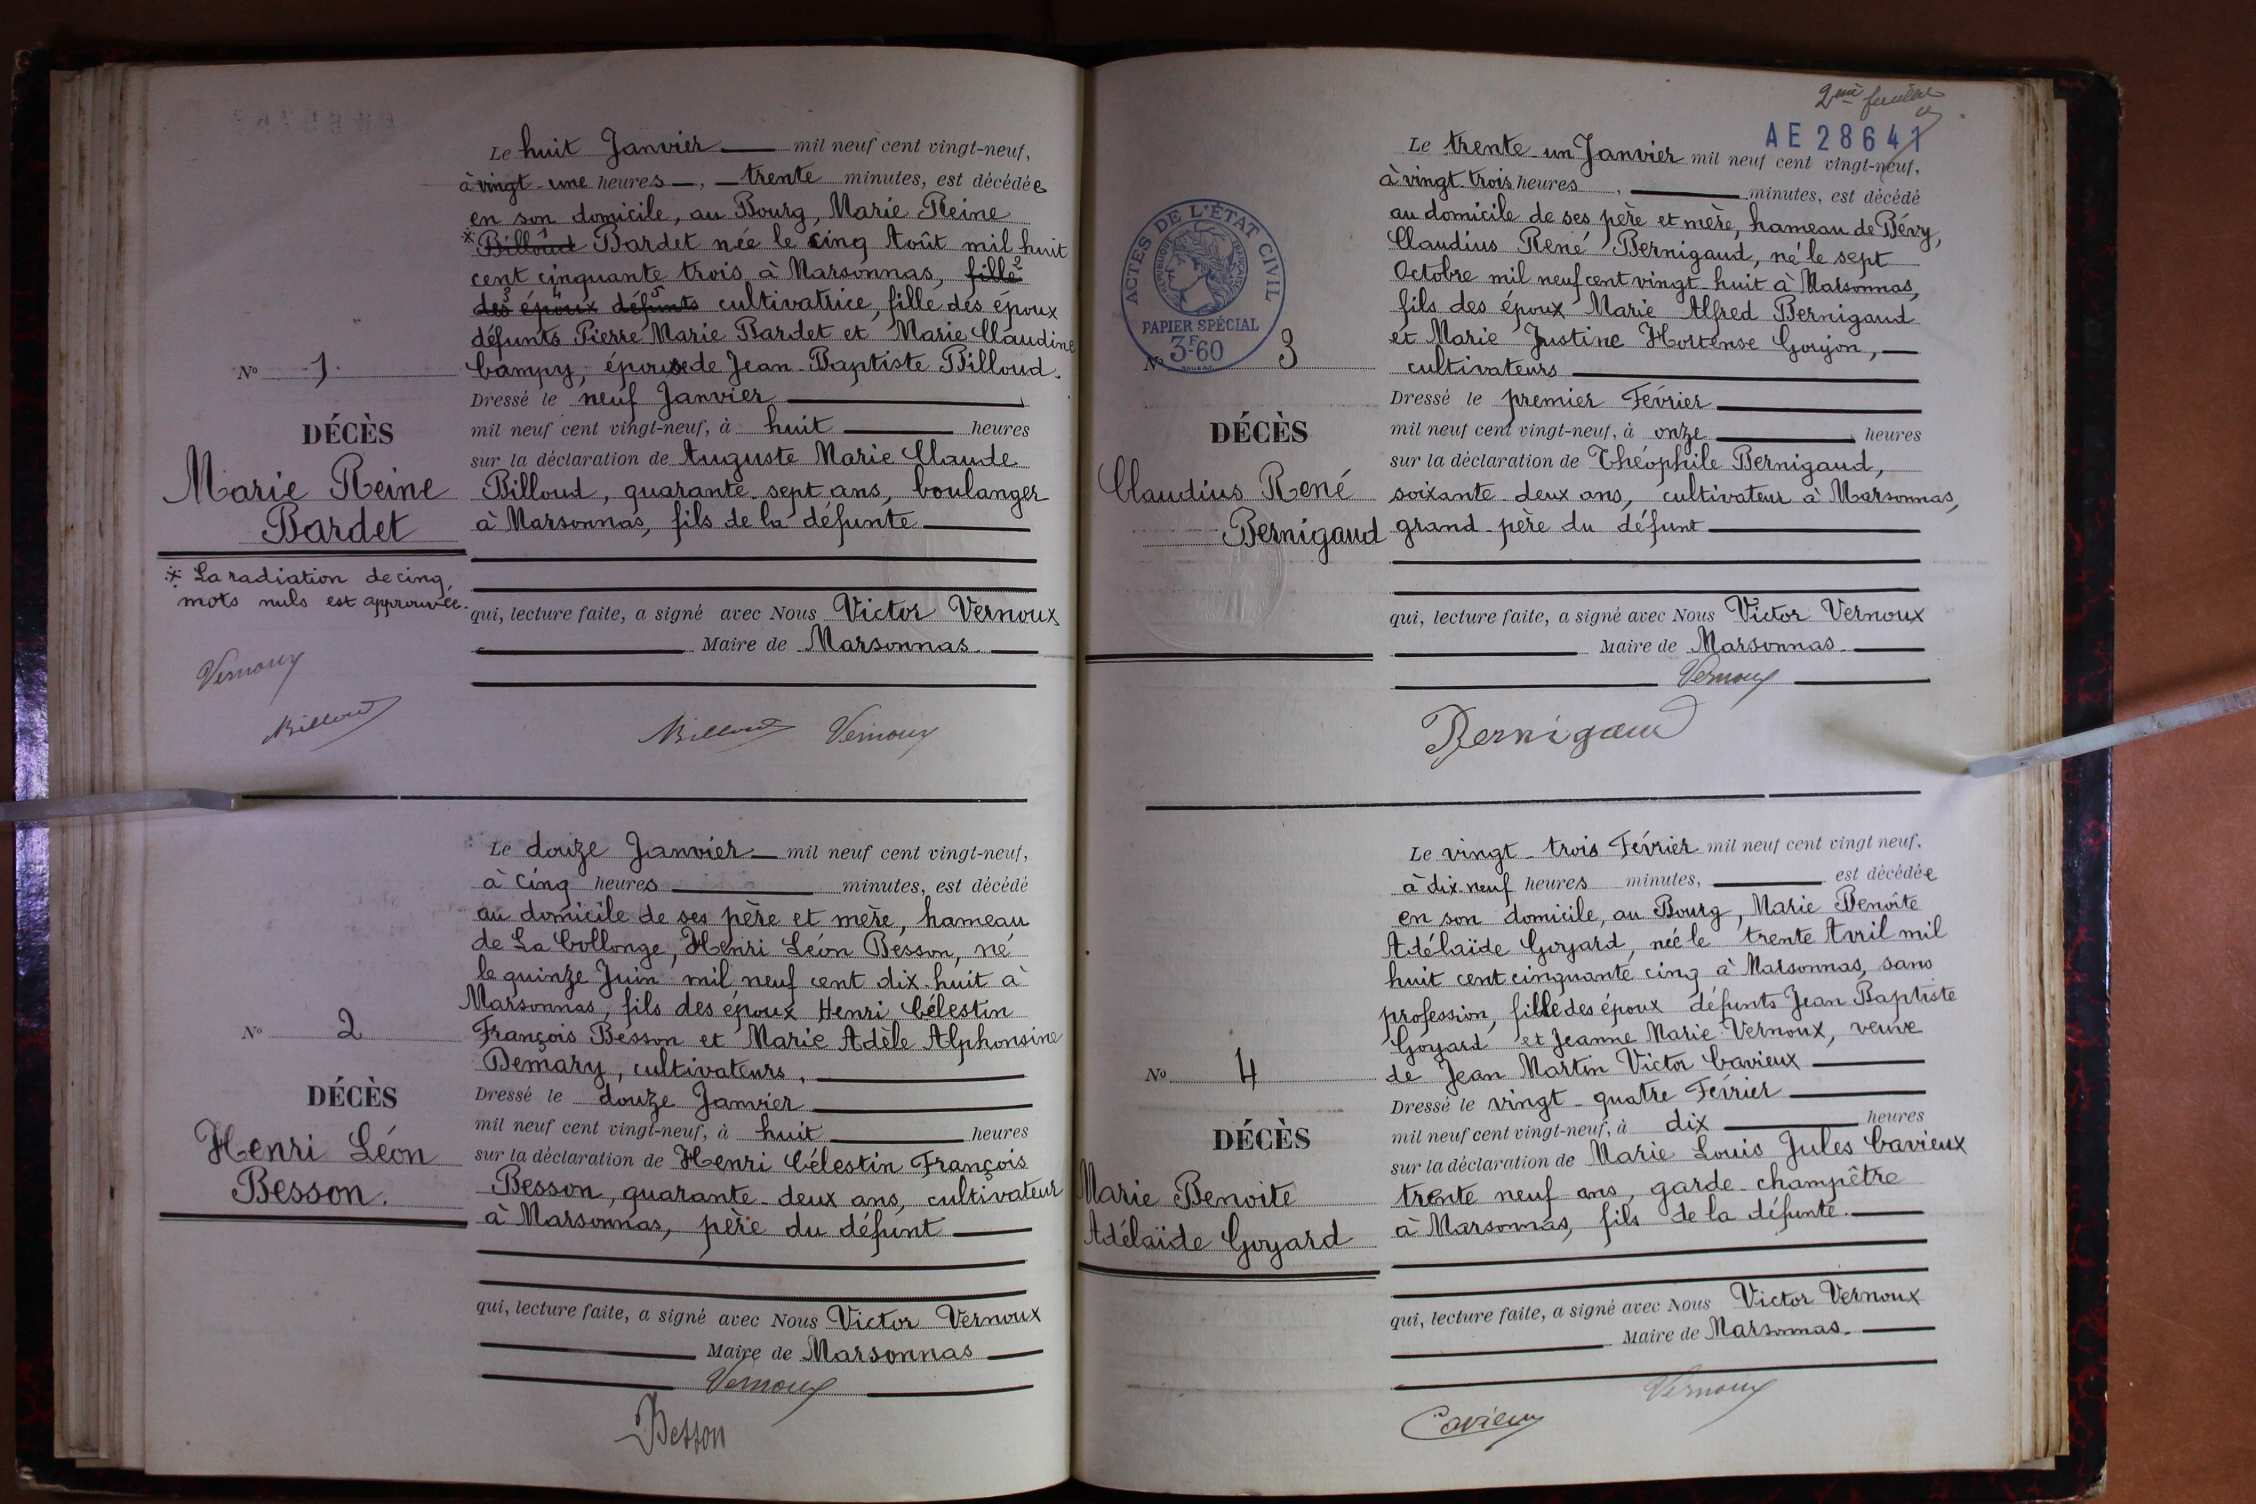 Le huit Janvier mil neuf cent vingt-neuf,
à vingt-une heures, trente minutes, est décédée
en son domicile, au Bourg, Marie Reine
* Billoud Bardet née le cinq Août mil huit
cent cinquante trois à Marsonnas, fille
des époux défunts cultivatrice, fille des époux
défunts Pierre Marie Bardet et Marie Claudine
Campy, épouse de Jean-Baptiste Billoud.
Dressé le neuf Janvier
mil neuf cent vingt-neuf, à huit heures
sur la déclaration de Auguste Marie Claude
Billoud, quarante-sept ans, boulanger
à Marsonnas, fils de la défunte
qui, lecture faite, a signé avec Nous Victor Vernoux
Maire de Marsonnas
Billoud Vernoux
No 1.
DÉCÈS
Marie Reine
Bardet
* La radiation de cinq
mots nuls est approuvée.
Vernoux
Billoud
Le douze Janvier mil neuf cent vingt-neuf,
à cinq heures minutes, est décédé
au domicile de ses père et mère, hameau
de La Collonge, Henri Léon Besson, né
le quinze Juin mil neuf cent dix-huit à
Marsonnas, fils des époux Henri Célestin
François Besson et Marie Adèle Alphonsine
Demary, cultivateurs,
Dressé le douze Janvier
mil neuf cent vingt-neuf, à huit heures
sur la déclaration de Henri Célestin François
Besson, quarante-deux ans, cultivateur
à Marsonnas, père du défunt
qui, lecture faite, a signé avec Nous Victor Vernoux
Maire de Marsonnas
Vernoux
Besson
No 2
DÉCÈS
Henri Léon
Besson.
2eme feuillet
AE 28641
ACTES DE L'ÉTAT CIVIL
PAPIER SPÉCIAL
3F60
Le trente-un Janvier mil neuf cent vingt-neuf,
à vingt-trois heures, minutes, est décédé
au domicile de ses père et mère, hameau de Bévy,
Claudius René Bernigaud, né le sept
Octobre mil neuf cent vingt-huit à Marsonnas,
fils des époux Marie Alfred Bernigaud
et Marie Justine Hortense Goujon,
cultivateurs
Dressé le premier Février
mil neuf cent vingt-neuf, à onze heures
sur la déclaration de Théophile Bernigaud,
soixante-deux ans, cultivateur à Marsonnas,
grand-père du défunt
qui, lecture faite, a signé avec Nous Victor Vernoux
Maire de Marsonnas
Vernoux
Bernigaud
No 3
DÉCÈS
Claudius René
Bernigaud
Le vingt-trois Février mil neuf cent vingt neuf,
à dix-neuf heures minutes, est décédée
en son domicile, au Bourg, Marie Benoîte
Adélaïde Goyard, née le trente Avril mil
huit cent cinquante cinq à Marsonnas, sans
profession, fille des époux défunts Jean Baptiste
Goyard et Jeanne Marie Vernoux, veuve
de Jean Martin Victor Cavieux
Dressé le vingt-quatre Février
mil neuf cent vingt-neuf, à dix heures
sur la déclaration de Marie Louis Jules Cavieux
trente neuf ans, garde-champêtre
à Marsonnas, fils de la défunte.
qui, lecture faite, a signé avec Nous Victor Vernoux
Maire de Marsonnas.
Vernoux
Cavieux
No 4
DÉCÈS
Marie Benoite
Adélaïde Goyard